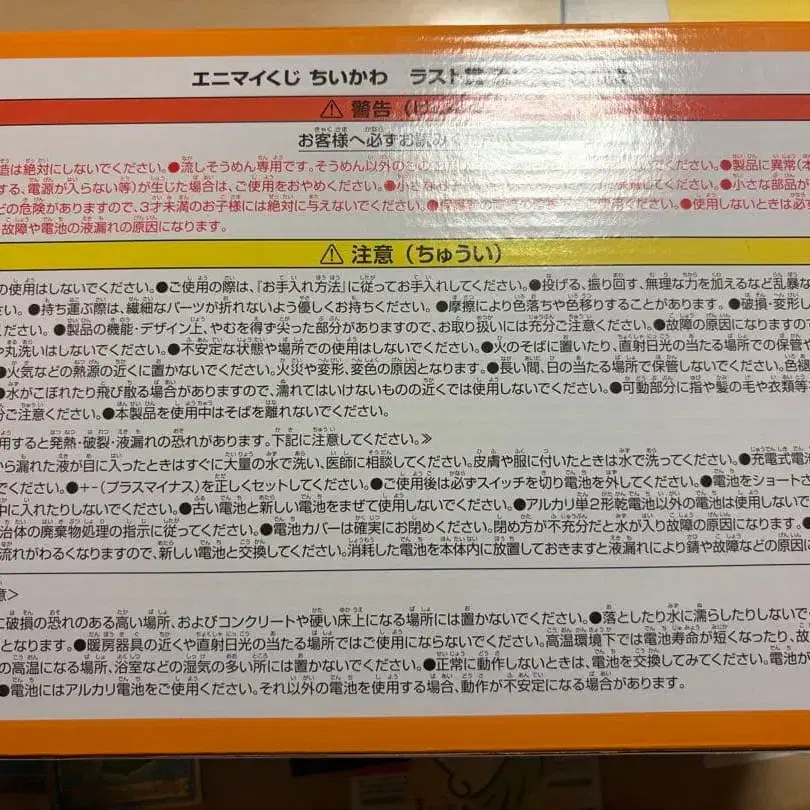 エニマイくじ ちいかわ ラスト賞
警告
お客様へ必ずお読み
造は絶対にしないでください。●流しそうめん専用です。そうめん以外の ください。●製品に異常(本
する、電源が入らない等)が生じた場合は、ご使用をおやめください。●小さな してください。●小さな部品が
どの危険がありますので、3才未満のお子様には絶対に与えないでください。 ご使用ください。●使用しないときは必ず
故障や電池の液漏れの原因になります。
注意(ちゅうい)
の使用はしないでください。●ご使用の際は、『お手入れ方法』に従ってお手入れしてください。●投げる、振り回す、無理な力を加えるなど乱暴な
い。●持ち運ぶ際は、繊細なパーツが折れないよう優しくお持ちください。●摩擦により色落ちや色移りすることがあります。●破損・変形し
ください。●製品の機能・デザイン上、やむを得ず尖った部分がありますので、お取り扱いには充分ご注意ください。●故障の原因になりますので
や丸洗いはしないでください。●不安定な状態や場所での使用はしないでください。●火のそばに置いたり、直射日光の当たる場所での保管や
●火気などの熱源の近くに置かないでください。火災や変形、変色の原因となります。●長い間、日の当たる場所で保管しないでください。色褪
●水がこぼれたり飛び散る場合がありますので、濡れてはいけないものの近くでは使用しないでください。●可動部分に指や髪の毛や衣類等
ご注意ください。●本製品を使用中はそばを離れないでください。
用すると発熱・破裂・液漏れの恐れがあります。下記に注意してください。≫
から漏れた液が目に入ったときはすぐに大量の水で洗い、医師に相談してください。皮膚や服に付いたときは水で洗ってください。●充電式電池
でください。●+-(プラスマイナス)を正しくセットしてください。●ご使用後は必ずスイッチを切り電池を外してください。●電池をショートさ
中に入れたりしないでください。●古い電池と新しい電池をまぜて使用しないでください。●アルカリ単2形乾電池以外の電池は使用しないで
治体の廃棄物処理の指示に従ってください。●電池カバーは確実にお閉めください。閉め方が不充分だと水が入り故障の原因になります。●
流れがわるくなりますので、新しい電池と交換してください。消耗した電池を本体内に放置しておきますと液漏れにより錆や故障などの原因に
意>
に破損の恐れのある高い場所、およびコンクリートや硬い床上になる場所には置かないでください。●落としたり水に濡らしたりしないで
となります。●暖房器具の近くや直射日光の当たる場所ではご使用にならないでください。高温環境下では電池寿命が短くなったり、故
の高温になる場所、浴室などの湿気の多い所には置かないでください。●正常に動作しないときは、電池を交換してみてください。電池が
●電池にはアルカリ電池をご使用ください。それ以外の電池を使用する場合、動作が不安定になる場合があります。